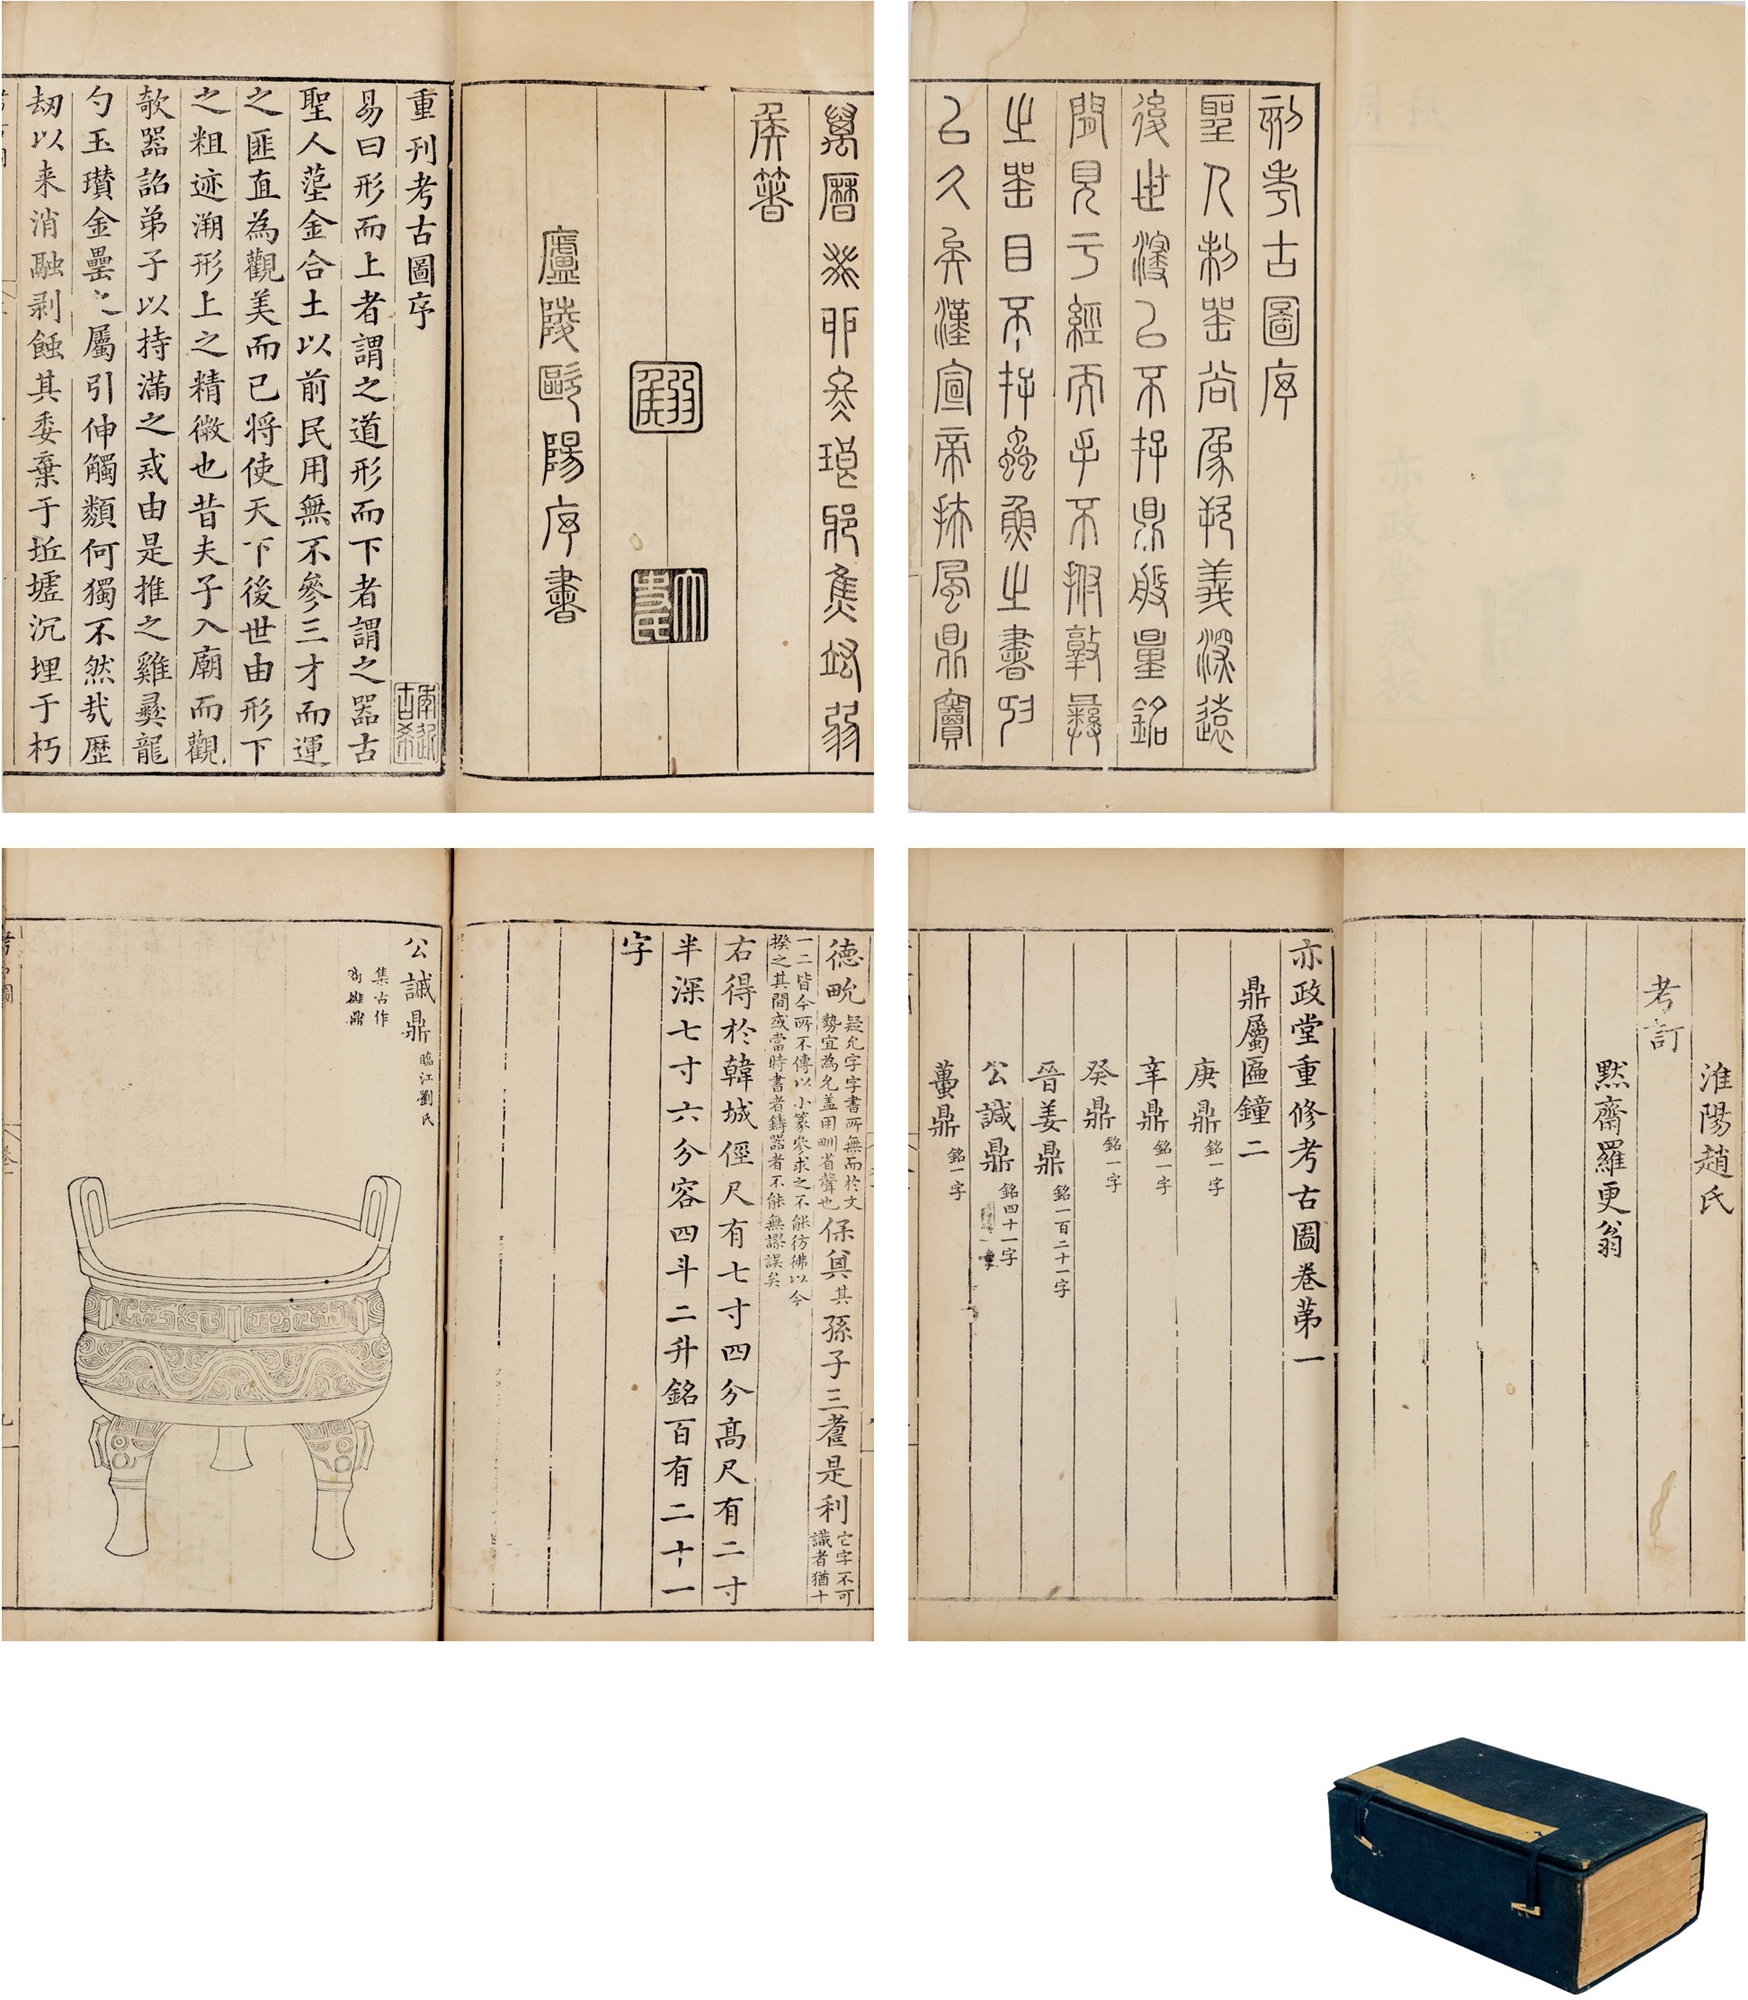 刻考古圖序
聖人制器尚象托義深遠
後世寖以不存鼎殷量銘
閒見于經而手不拊敦彝
之器目不存蟲魚之書
以久矣漢宣帝扶風鼎寶
萬曆癸卯冬琅邪焦竑弱
矦箸
弱矦
太史氏
廬陵歐陽序書
重刊考古圖序
易曰形而上者謂之道形而下者謂之器古
聖人金合土以前民用無不參三才而運
之匪直為觀美而已将使天下後世由形下
之粗迹溯形上之精微也昔夫子入廟而觀
欹器詔弟子以持滿之戒由是推之雞彝龍
勺玉瓚金罍之屬引伸觸類何獨不然哉歷
劫以来消融剥蝕其委棄于坵墟沉埋于朽
淮陽趙氏
考訂
黙齋羅更翁
亦政堂重修考古圖卷苐一
鼎屬匜鐘二
庚鼎 銘一字
辛鼎 銘一字
癸鼎 銘一字
晉姜鼎 銘一百二十一字
公諴鼎 銘四十一字
蠆鼎 銘一字
德毗 疑允字字書所無而於文
勢宜為允盖用毗省聲也 保其 其 孫子三壽是利 它字不可
識者猶十
一二皆今所不傳以小篆參求之不能彷彿以今
揆之其間或當時書者鑄器者不能無謬誤矣
右得於韓城徑尺有七寸四分髙尺有二寸
半深七寸六分容四斗二升銘百有二十一
字
公諴鼎 臨江劉氏
集古作
商雒鼎
考古圖
卷一